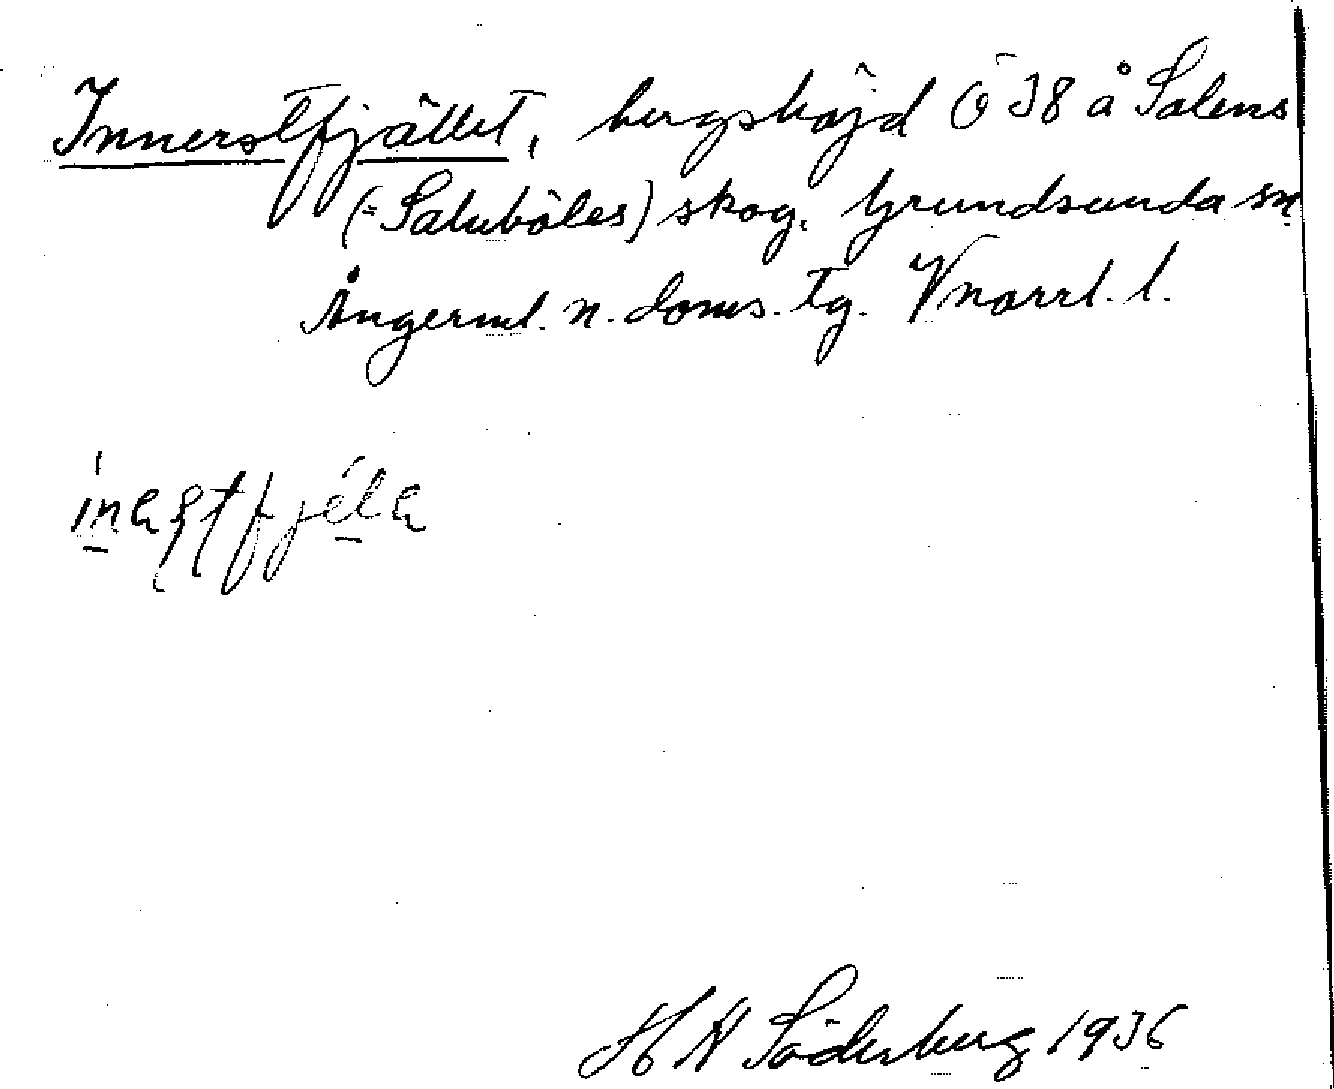 Innerstfjället, bergshöjd Ö 38 å Salens
(= Saluböles) skog, Grundsunda sn
Ångerml. n. doms. tg. Vnorrl. l.
H N Söderberg 1936